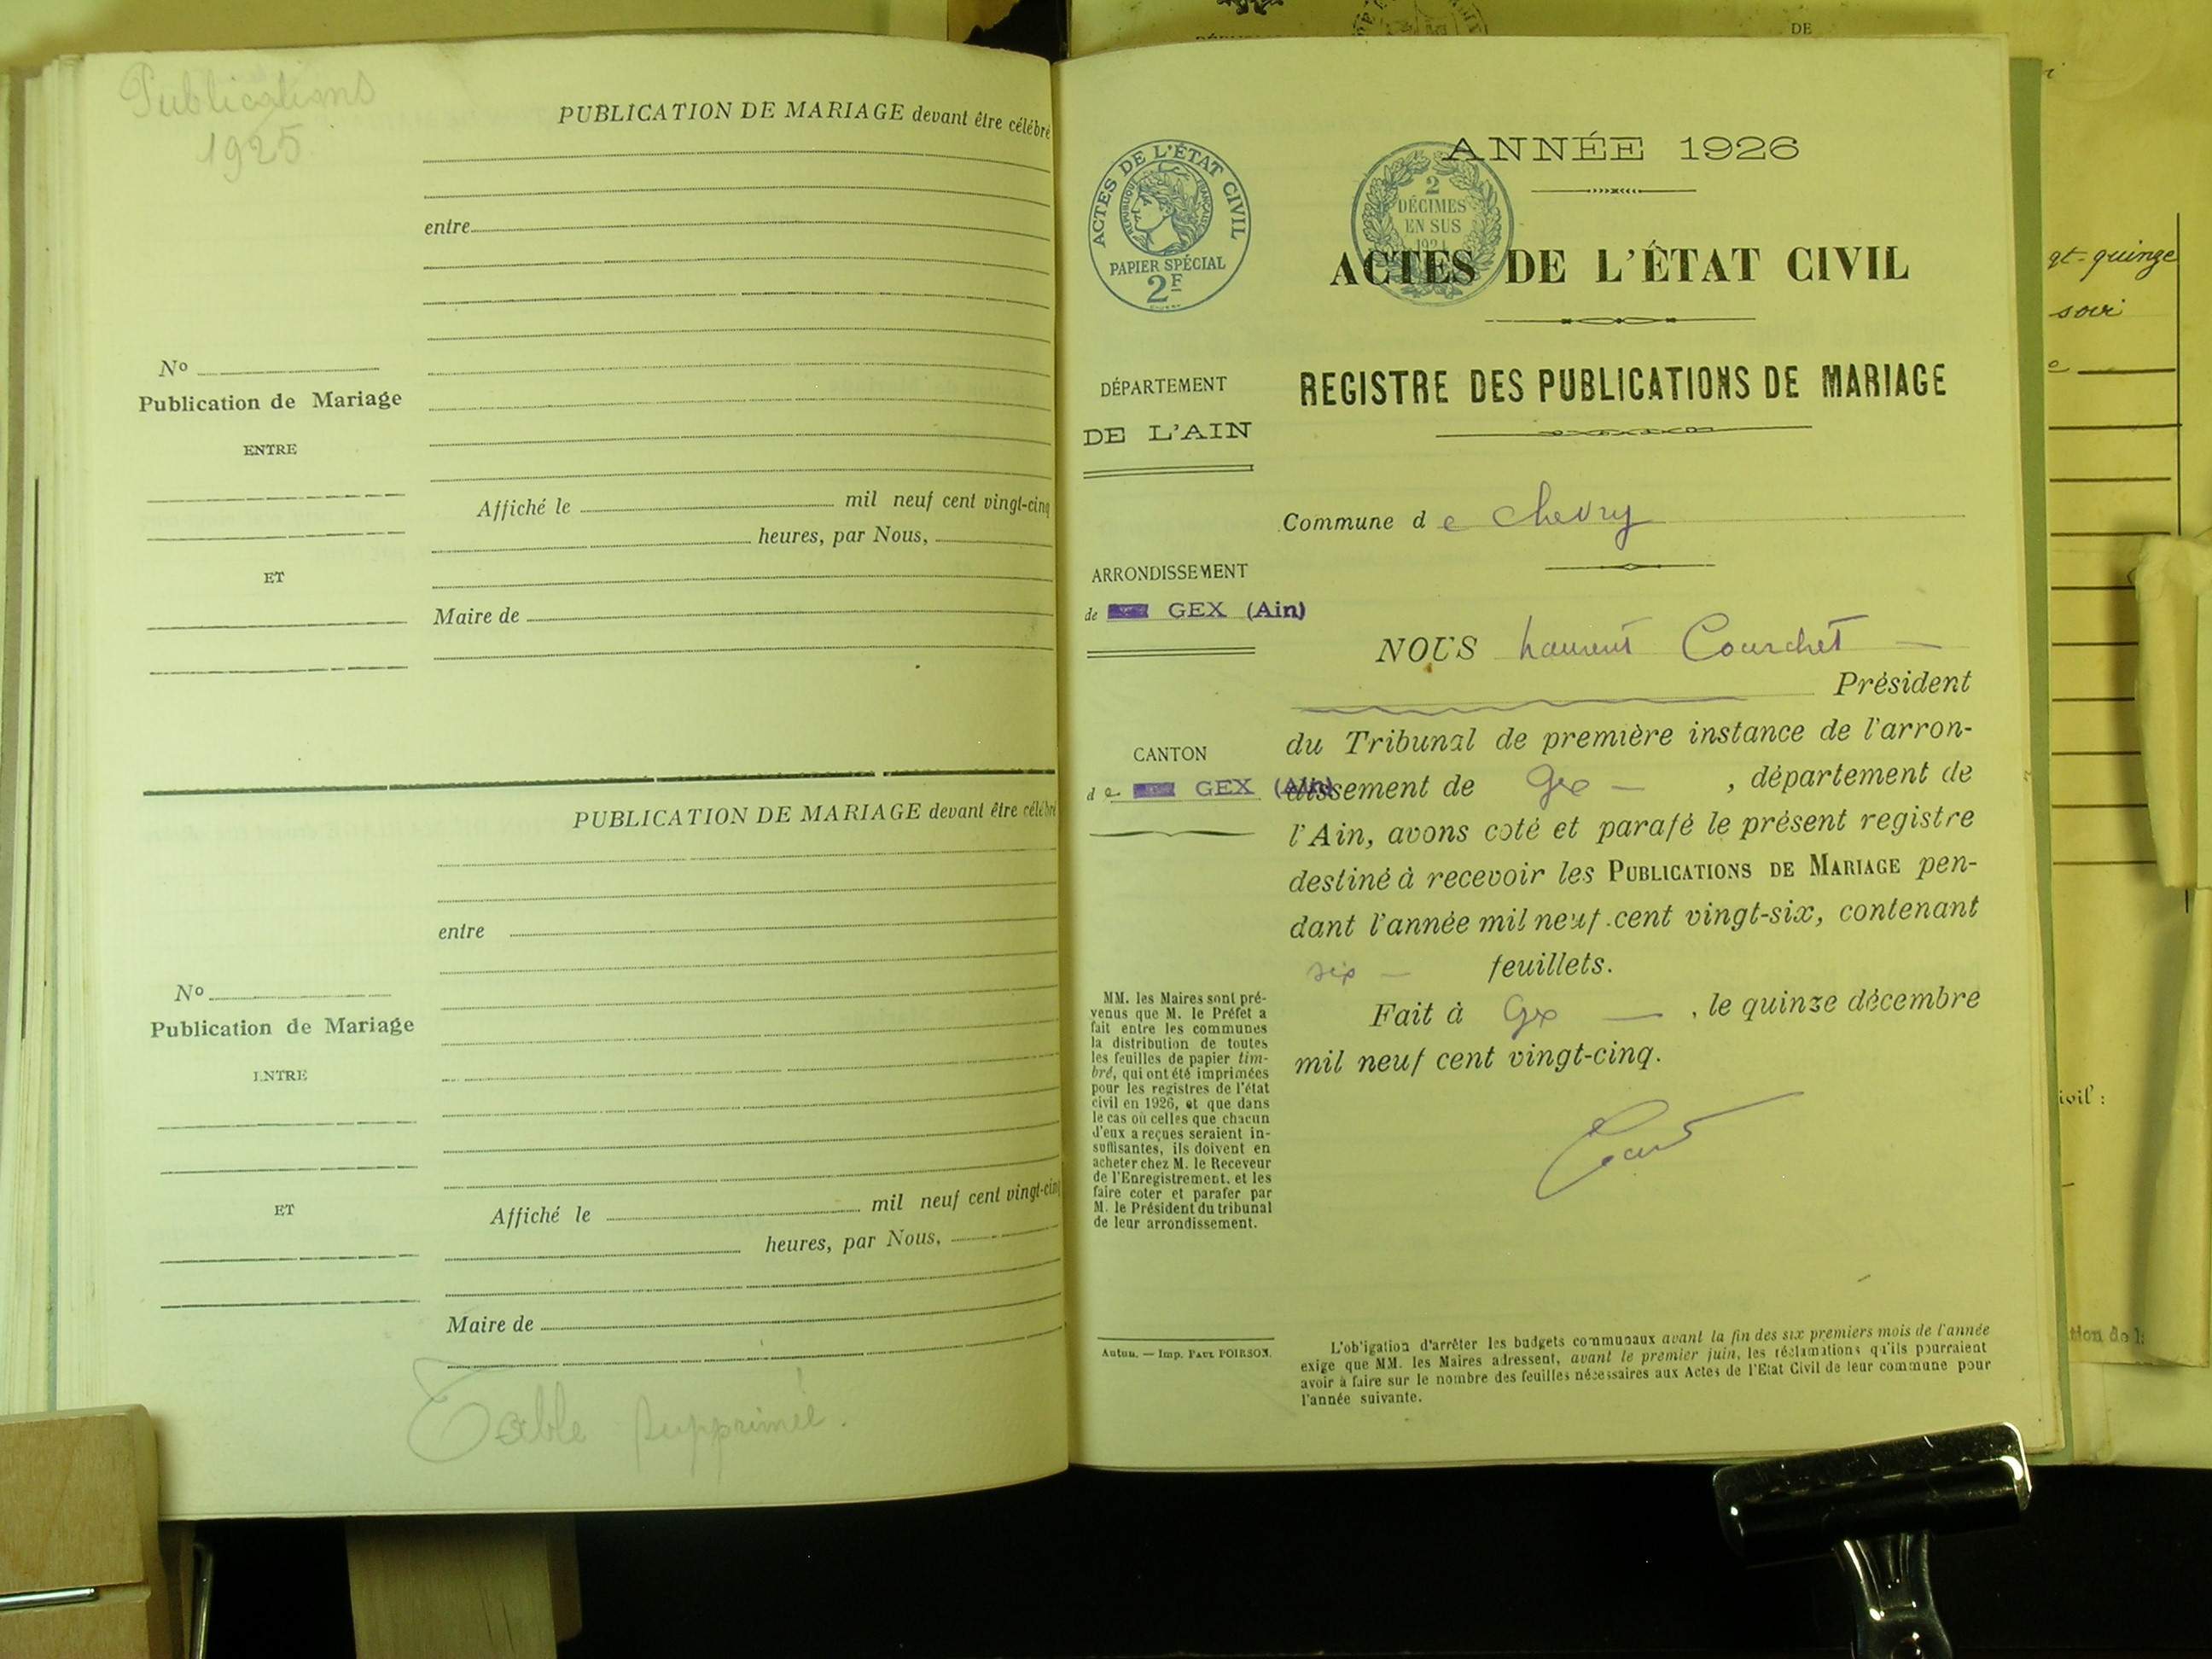 Publications
1925
PUBLICATION DE MARIAGE devant être célébré
entre
No
Publication de Mariage
ENTRE
ET
Affiché le mil neuf cent vingt-cinq
heures, par Nous,
Maire de
PUBLICATION DE MARIAGE devant être célébré
entre
No
Publication de Mariage
ENTRE
ET
Affiché le mil neuf cent vingt-cinq
heures, par Nous,
Maire de
Table supprimée.
ACTES DE L'ÉTAT CIVIL
RÉPUBLIQUE FRANÇAISE
PAPIER SPÉCIAL
2F
2
DÉCIMES
EN SUS
1924
DÉPARTEMENT
DE L'AIN
ARRONDISSEMENT
de GEX (Ain)
CANTON
de GEX (Ain)
MM. les Maires sont pré-
venus que M. le Préfet a
fait entre les communes
la distribution de toutes
les feuilles de papier tim-
bré, qui ont été imprimées
pour les registres de l'état
civil en 1926, et que dans
le cas où celles que chacun
d'eux a reçues seraient in-
suffisantes, ils doivent en
acheter chez M. le Receveur
de l'Enregistrement, et les
faire coter et parafer par
M. le Président du tribunal
de leur arrondissement.
Autun. — Imp. PAUL POIRSON.
ANNÉE 1926
ACTES DE L'ÉTAT CIVIL
REGISTRE DES PUBLICATIONS DE MARIAGE
Commune de Chevry
NOUS Laurent Courchet
Président
du Tribunal de première instance de l'arron-
dissement de Gex , département de
l'Ain, avons coté et parafé le présent registre
destiné à recevoir les PUBLICATIONS DE MARIAGE pen-
dant l'année mil neuf cent vingt-six, contenant
six feuillets.
Fait à Gex , le quinze décembre
mil neuf cent vingt-cinq.
L'obligation d'arrêter les budgets communaux avant la fin des six premiers mois de l'année
exige que MM. les Maires adressent, avant le premier juin, les réclamations qu'ils pourraient
avoir à faire sur le nombre des feuilles nécessaires aux Actes de l'Etat Civil de leur commune pour
l'année suivante.
DE
gt-quinze
soir
ivil :